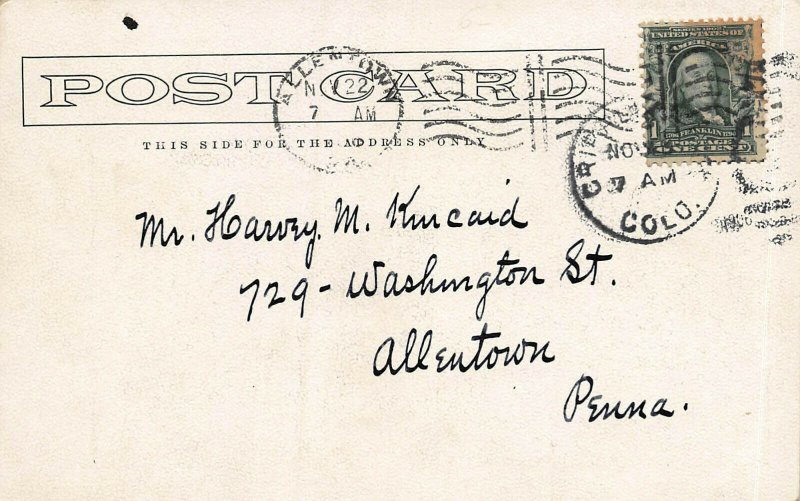 POST CARD
THIS SIDE FOR THE ADDRESS ONLY
ALLENTOWN
NOV 22
7 AM
SERIES 1902
UNITED STATES OF
AMERICA
FRANKLIN
POSTAGE
1 ONE CENT 1
NOV
7 AM
COLO.
Mr. Harvey. M. Kincaid
729 - Washington St.
Allentown
Penna.